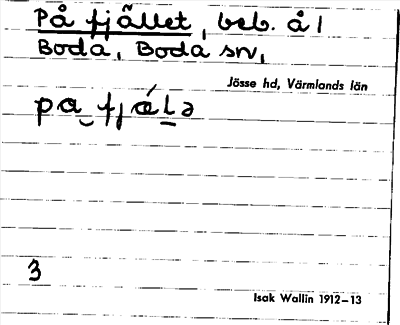 På fjället, beb. å 1
Boda, Boda sn,
Jösse hd, Värmlands län
pa fjǽlə
3
Isak Wallin 1912–13